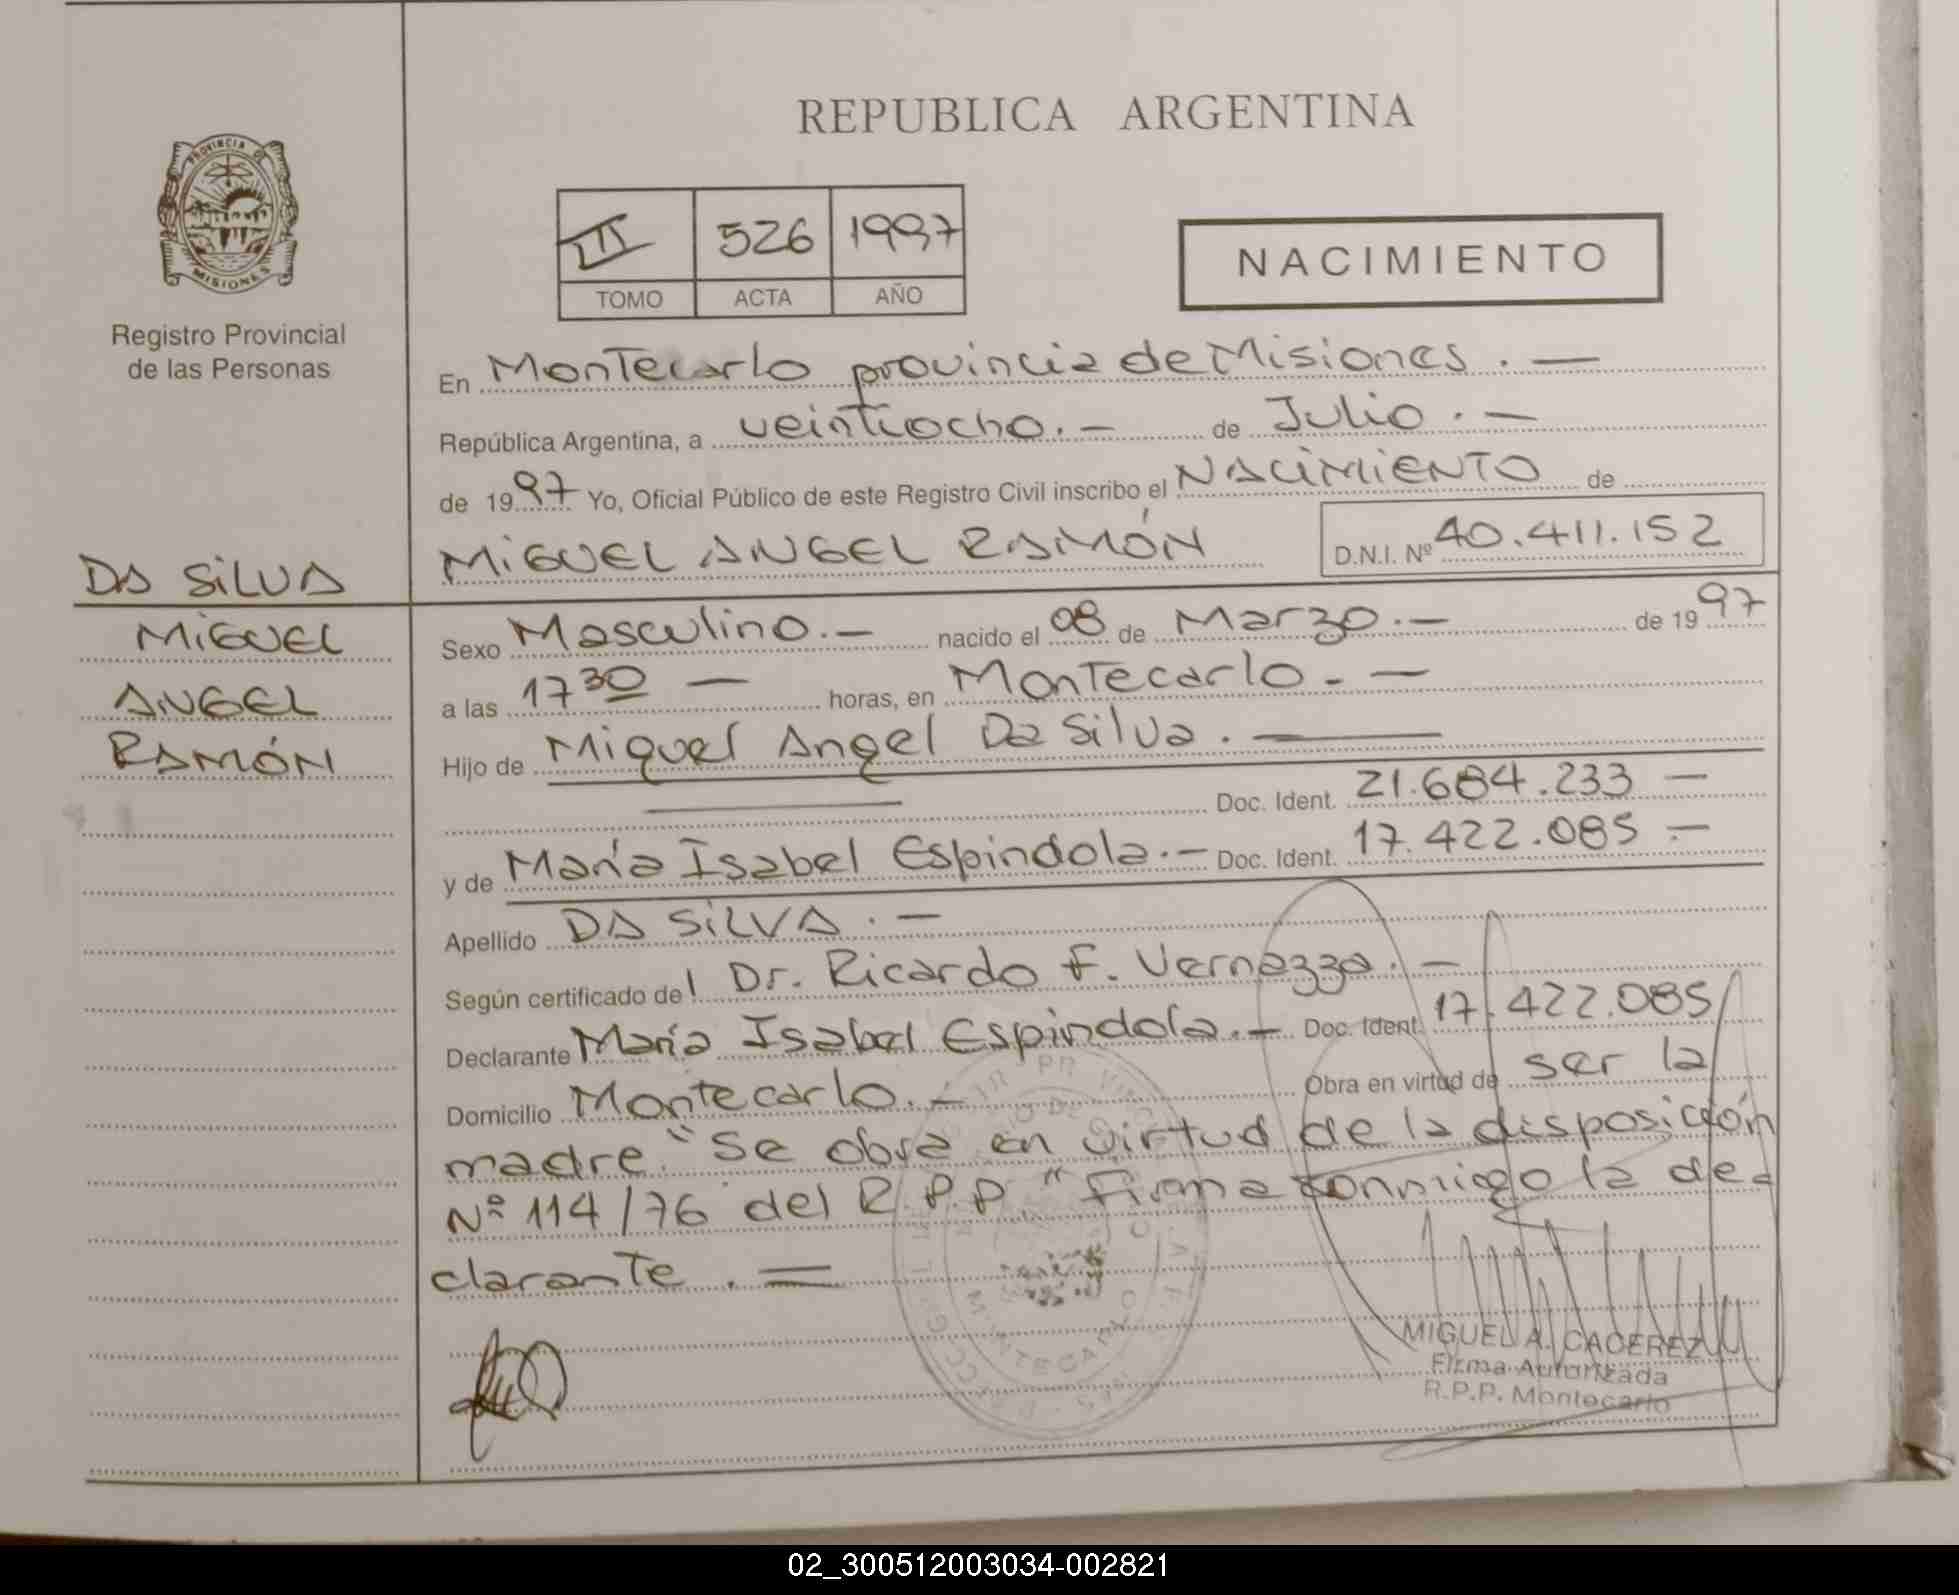 REPUBLICA ARGENTINA
PROVINCIA DE
MISIONES
Registro Provincial
de las Personas
III 526 1997
TOMO ACTA AÑO
NACIMIENTO
En Montecarlo provincia de Misiones . —
República Argentina, a veintiocho. — de Julio . —
de 1997 Yo, Oficial Público de este Registro Civil inscribo el NACIMIENTO de
MIGUEL ANGEL RAMÓN D.N.I. Nº 40.411.152
DA SILVA
MIGUEL
ANGEL
RAMÓN
Sexo Masculino. — nacido el 08 de Marzo. — de 1997
a las 17 30 — horas, en Montecarlo. —
Hijo de Miguel Angel Da Silva . —
— Doc. Ident. 21.684.233 —
y de María Isabel Espindola. — Doc. Ident. 17.422.085 —
Apellido DA SILVA . —
Según certificado del Dr. Ricardo F. Vernazza. —
Declarante María Isabel Espindola. — Doc. Ident. 17.422.085
Domicilio Montecarlo. — Obra en virtud de ser la
madre. "Se obra en virtud de la disposición
Nº 114/76 del R.P.P." Firma conmigo la de-
clarante . —
MONTECARLO
MIGUEL A. CACEREZ
Firma Autorizada
R.P.P. Montecarlo
02_300512003034-002821